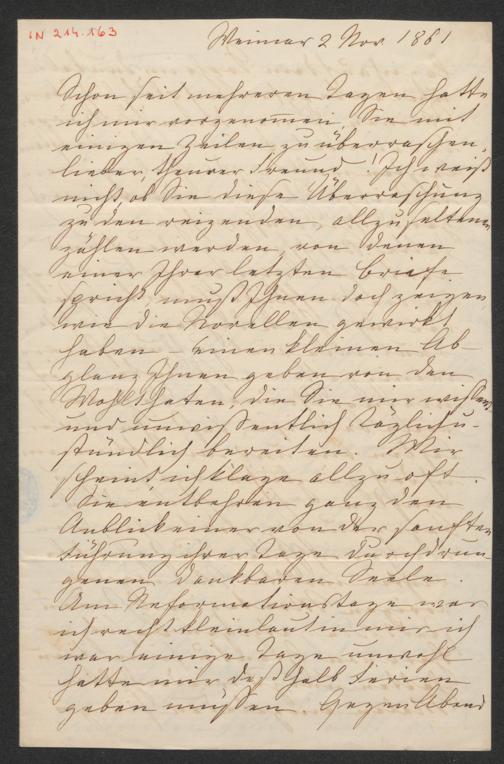 IN 214.163
Weimar 2 Nov 1881
Schon seit mehreren Tagen hatte
ich mir vorgenommen Sie mit
einigen Zeilen zu überraschen,
lieber, theurer Freund! Ich weiß
nicht, ob Sie diese Überraschung
zu den reizenden, allzu seltenen
zählen werden, von denen
einer Ihrer letzten Briefe
spricht, muß Ihnen doch zeigen
wie die Novellen gewirkt
haben – einen kleinen Ab
glanz Ihnen geben von den
Wohlthaten, die Sie mir wissent
und unwissentlich täglich u–
stündlich bereiten. Mir
scheint ich klage allzu oft.
Sie entbehren ganz den
Anblick einer von der sanften
Führung ihrer Tage durchdrun
genen dankbaren Seele.
Am Reformationstage war
ich recht kleinlaut in mir ich
war einige Tage unwohl
hatte mir deßhalb Ferien
geben müssen. Gegen Abend